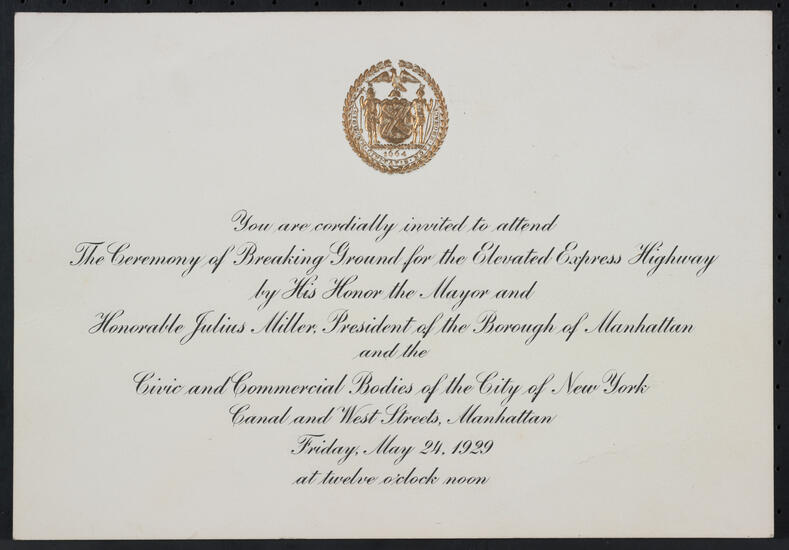 1664
You are cordially invited to attend
The Ceremony of Breaking Ground for the Elevated Express Highway
by His Honor the Mayor and
Honorable Julius Miller, President of the Borough of Manhattan
and the
Civic and Commercial Bodies of the City of New York
Canal and West Streets, Manhattan
Friday, May 24, 1929
at twelve o'clock noon